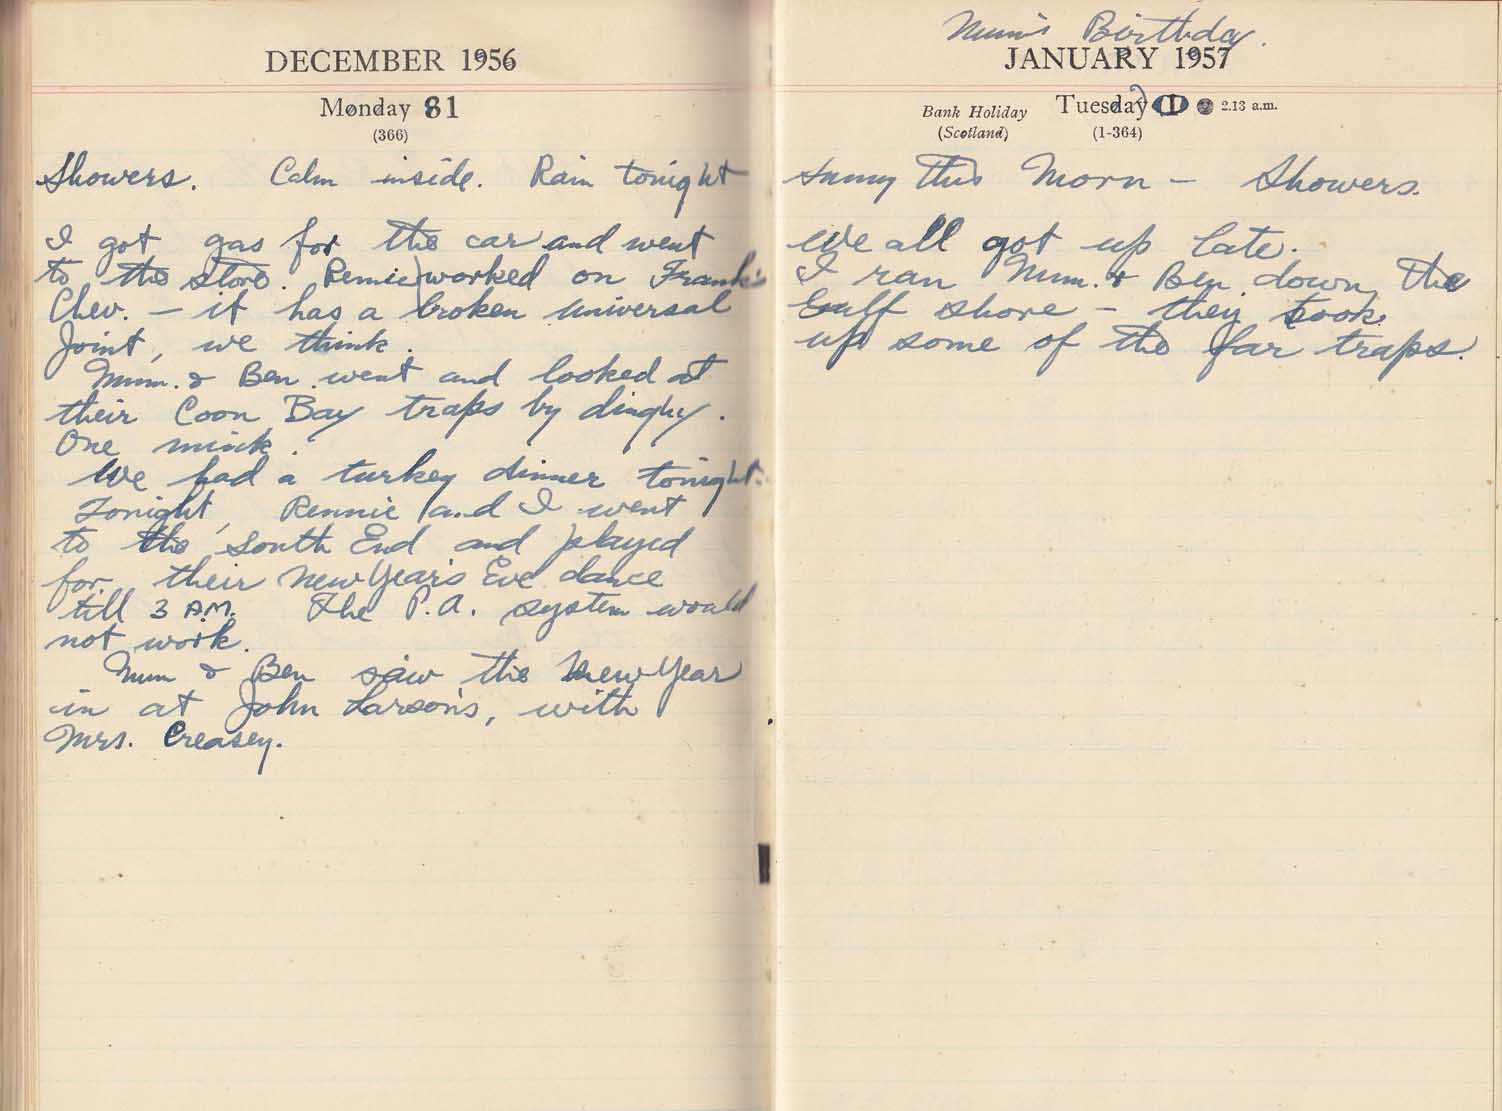 DECEMBER 1956
Monday 31
(366)
Showers. Calm inside. Rain tonight
I got gas for the car and went
to the store. Rennie worked on Frank's
Chev. — it has a broken universal
Joint, we think.
Mum. & Ben went and looked at
their Coon Bay traps by dinghy.
One mink.
We had a turkey dinner tonight.
Tonight, Rennie and I went
to the South End and played
for their New Year's Eve dance
till 3 A.M. The P.A. system would
not work.
Mum & Ben saw the New Year
in at John Larson's, with
Mrs. Creasey.
Mum's Birthday.
JANUARY 1957
Bank Holiday
(Scotland)
Tuesday 1 2.13 a.m.
(1-364)
Sunny This Morn — Showers.
We all got up late.
I ran Mum. & Ben down the
Gulf shore — they took
up some of the far traps.